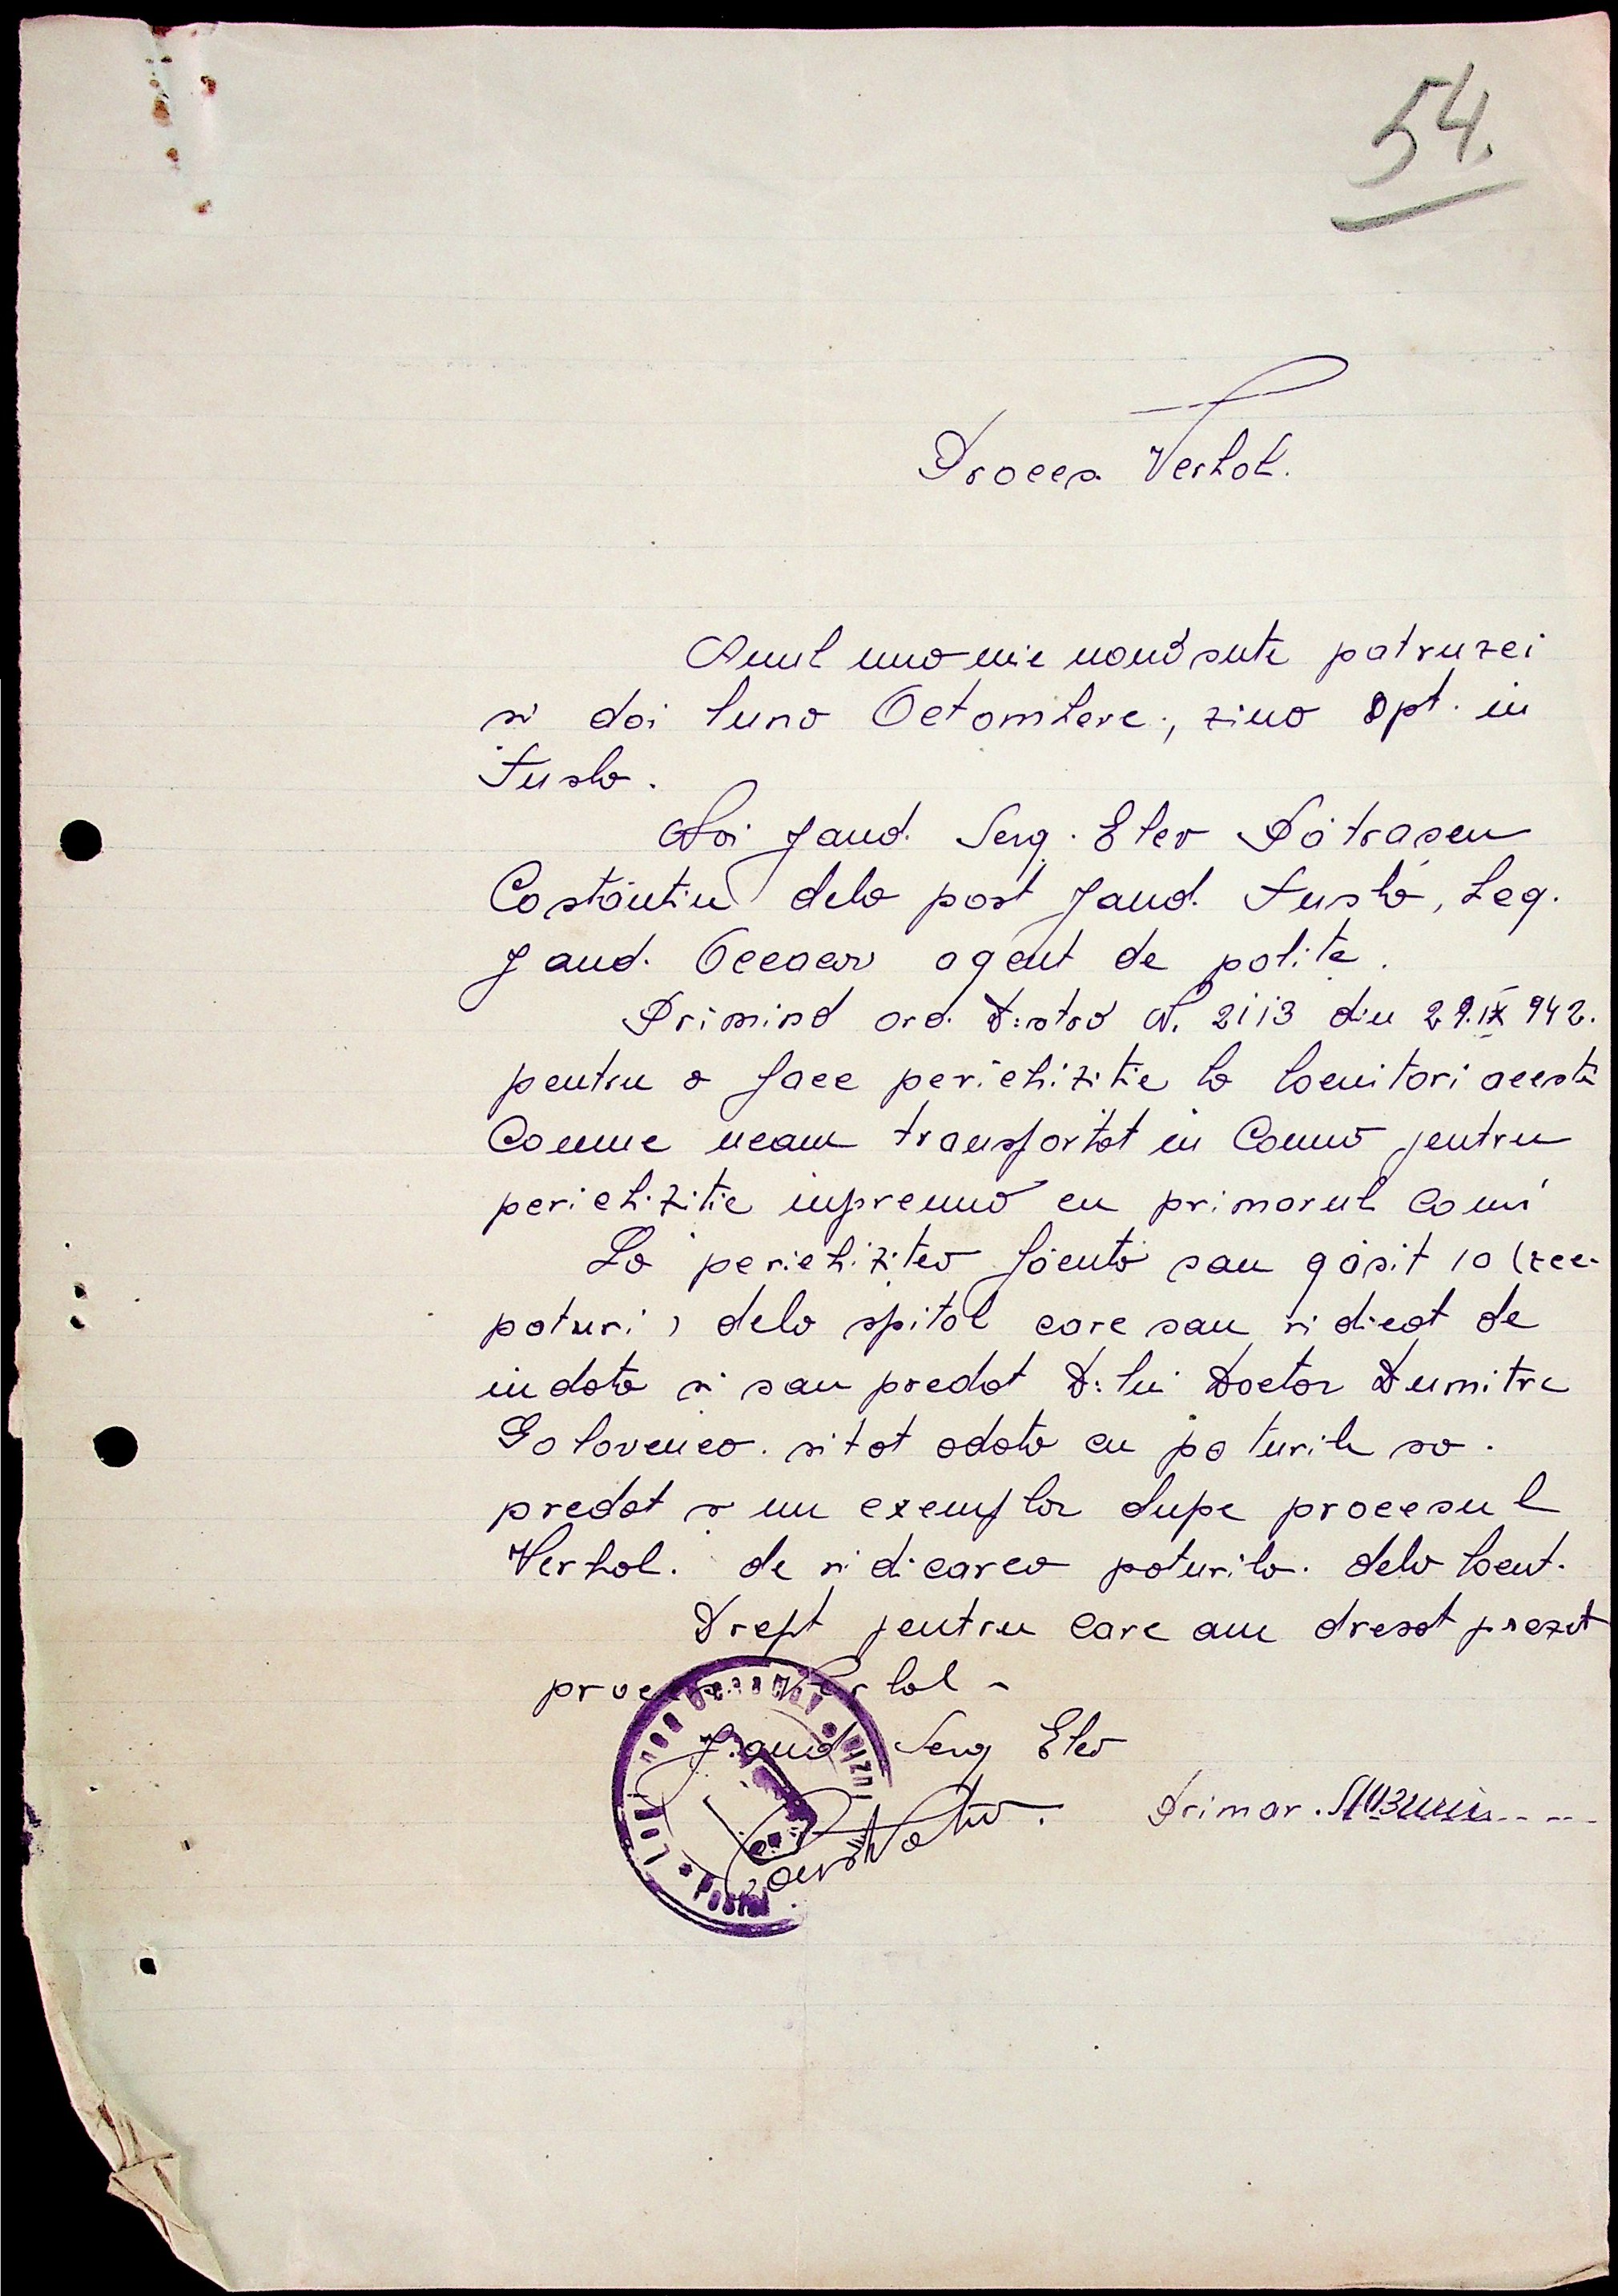 54.
Proces Verbal.
Anul una mie nouă sute patruzei
si doi luna Octombere, ziua 8 pt. in
Tusla.
Noi Jand. Serg. Elev Pătrascu
Costăntin dela post Jand. Tusla, Leg.
Jand. Oceacov agent de polite.
Primind ord. D:stră N. 2113 din 29.IX 942.
pentru a face perichizitie la locuitori acesti
Comune neam transportat in Comuă pentru
perichizitie inpreună cu primarul Comi
La perichizitea făcută sau găsit 10 (zece
paturi) dela spital care sau ridicat de
indata si sau predat D:lui Doctor Dumitre
Golovenco. si tot odata cu paturile sa.
predat si un exemplar dupe procesul
Verbal. de ridicarea paturilo. dela locut.
Drept pentru care am dresat prezet
proces Verbal -
Jand Serg Elev
Primar.